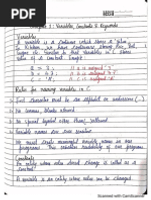 Chapter 1: Variables, Constants & Keywords
Variables
A variable is a container which stores a 'value'.
In kitchen, we have containers storing Rice, Dal,
Sugar etc. Similar to that Variables in C stores
value of a constant. Example:
a = 3; // a is assigned "3"
b = 4.7; // b is assigned "4.7"
c = 'A'; // c is assigned 'A'
Rules for naming variables in C
1. First character must be an alphabet or underscore (_)
2. No commas, blanks allowed.
3. No special symbol other than (_) allowed
4. Variable names are case sensitive
We must create meaningful variable names in our
programs. This enhances readability of our programs.
Constants
An entity whose value doesn't change is called as a
constant.
A variable is an entity whose value can be changed
Scanned with CamScanner